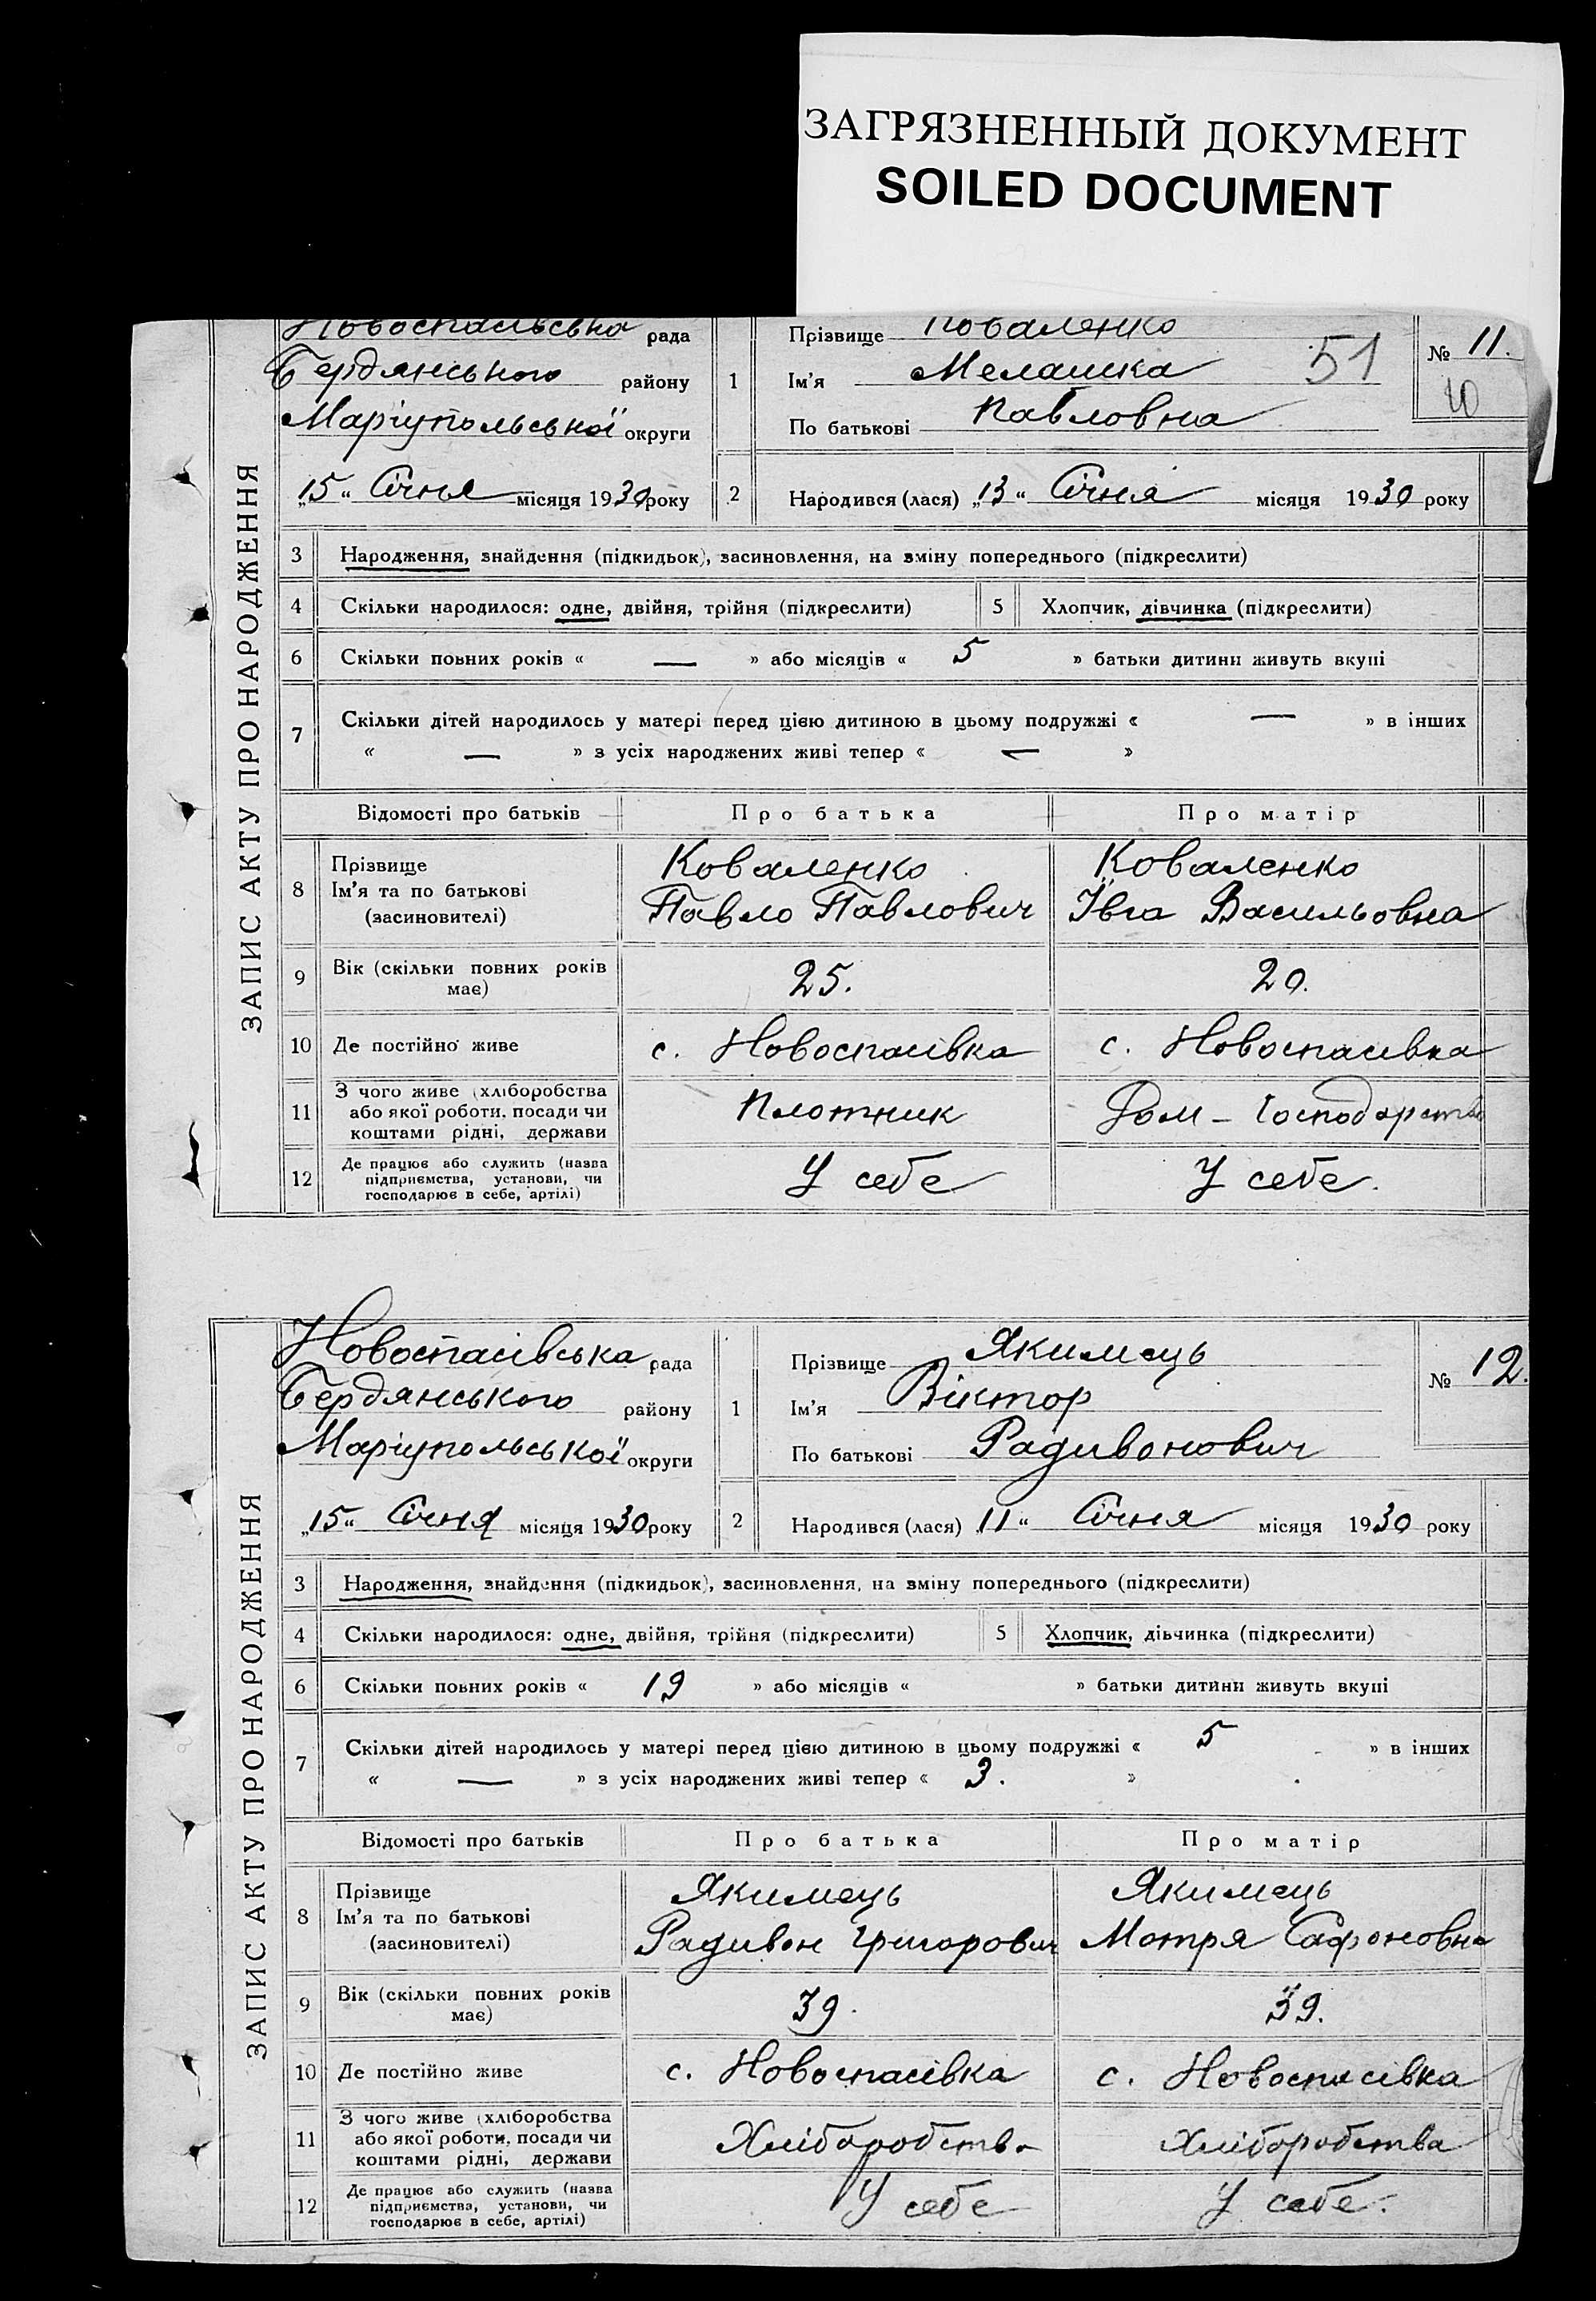 ЗАГРЯЗНЕННЫЙ ДОКУМЕНТ
SOILED DOCUMENT
ЗАПИС АКТУ ПРО НАРОДЖЕННЯ
Новоспасівська рада
Бердянського району
Маріупольської округи
„15“ Січня місяця 1930 року
1 Прізвище Коваленко
Ім'я Мелашка 51
По батькові Павловна
№ 11.
10
2 Народився (лася) „13“ Січня місяця 1930 року
3 Народження, знайдення (підкидьок), засиновлення, на зміну попереднього (підкреслити)
4 Скільки народилося: одне, двійня, трійня (підкреслити) 5 Хлопчик, дівчинка (підкреслити)
6 Скільки повних років « — » або місяців « 5 » батьки дитини живуть вкупі
7 Скільки дітей народилось у матері перед цією дитиною в цьому подружжі « — » в інших
« — » з усіх народжених живі тепер « — »
Відомості про батьків Про батька Про матір
8 Прізвище Коваленко Коваленко
Ім'я та по батькові Павло Павлович Ївга Васильовна
(засиновителі)
9 Вік (скільки повних років має) 25. 20.
10 Де постійно живе с. Новоспасівка с. Новоспасівка
11 З чого живе (хліборобства
або якої роботи, посади чи Плотник Дом - Господарства
коштами рідні, держави
12 Де працює або служить (назва
підприємства, установи, чи У себе У себе.
господарює в себе, артілі)
ЗАПИС АКТУ ПРО НАРОДЖЕННЯ
Новоспасівська рада
Бердянського району
Маріупольської округи
„15“ Січня місяця 1930 року
1 Прізвище Якимець
Ім'я Віктор
По батькові Радивонович
№ 12.
2 Народився (лася) 11“ Січня місяця 1930 року
3 Народження, знайдення (підкидьок), засиновлення, на зміну попереднього (підкреслити)
4 Скільки народилося: одне, двійня, трійня (підкреслити) 5 Хлопчик, дівчинка (підкреслити)
6 Скільки повних років « 19 » або місяців « » батьки дитини живуть вкупі
7 Скільки дітей народилось у матері перед цією дитиною в цьому подружжі « 5 » в інших
« — » з усіх народжених живі тепер « 3. »
Відомості про батьків Про батька Про матір
8 Прізвище Якимець Якимець
Ім'я та по батькові Радивон Григорович Мотря Сафоновна
(засиновителі)
9 Вік (скільки повних років має) 39. 39.
10 Де постійно живе с. Новоспасівка с. Новоспасівка
11 З чого живе (хліборобства
або якої роботи, посади чи Хліборобства Хліборобства
коштами рідні, держави
12 Де працює або служить (назва
підприємства, установи, чи У себе У себе.
господарює в себе, артілі)